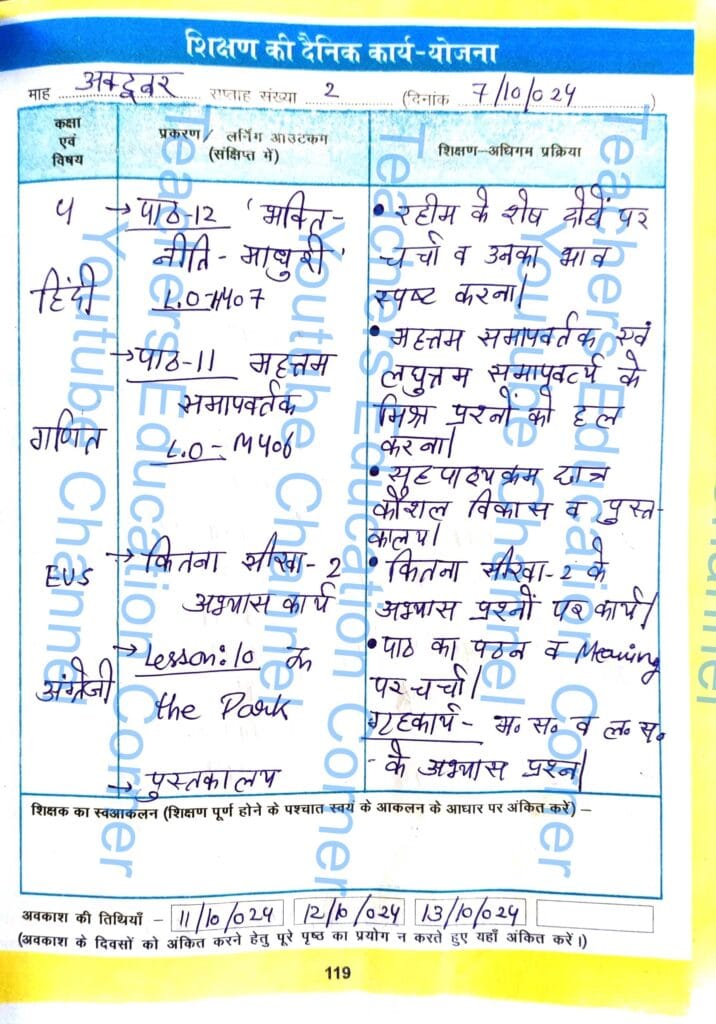 शिक्षण की दैनिक कार्य-योजना
माह अक्टूबर सप्ताह संख्या 2 (दिनांक 7/10/024)
कक्षा
एवं
विषय
प्रकरण/ लर्निंग आउटकम
(संक्षिप्त में)
शिक्षण-अधिगम प्रक्रिया
4
हिंदी
गणित
EVS
अंग्रेजी
→ पाठ-12 'भक्ति-
नीति-माधुरी'
L.O-H407
→ पाठ-11 महत्तम
समापवर्तक
L.O- M406
→ कितना सीखा-2
अभ्यास कार्य
→ Lesson:10
the Park
→ पुस्तकालय
• रहीम के शेष दोहों पर
चर्चा व उनका भाव
स्पष्ट करना।
• महत्तम समापवर्तक एवं
लघुत्तम समापवर्त्य के
मिश्र प्रश्नों को हल
करना।
• सहपाठ्यक्रम छात्र
कौशल विकास व पुस्त-
कालय।
• कितना सीखा-2 के
अभ्यास प्रश्नों पर कार्य।
• पाठ का पठन व Meaning
पर चर्चा।
गृहकार्य- म. स. व ल. स.
- के अभ्यास प्रश्न।
शिक्षक का स्वआकलन (शिक्षण पूर्ण होने के पश्चात स्वयं के आकलन के आधार पर अंकित करें) –
अवकाश की तिथियाँ - 11/10/024 12/10/024 13/10/024
(अवकाश के दिवसों को अंकित करने हेतु पूरे पृष्ठ का प्रयोग न करते हुए यहाँ अंकित करें।)
119
Teachers Education Corner
Youtube Channel
Teachers Education Corner
Youtube Channel
Teachers Education Corner
Youtube Channel